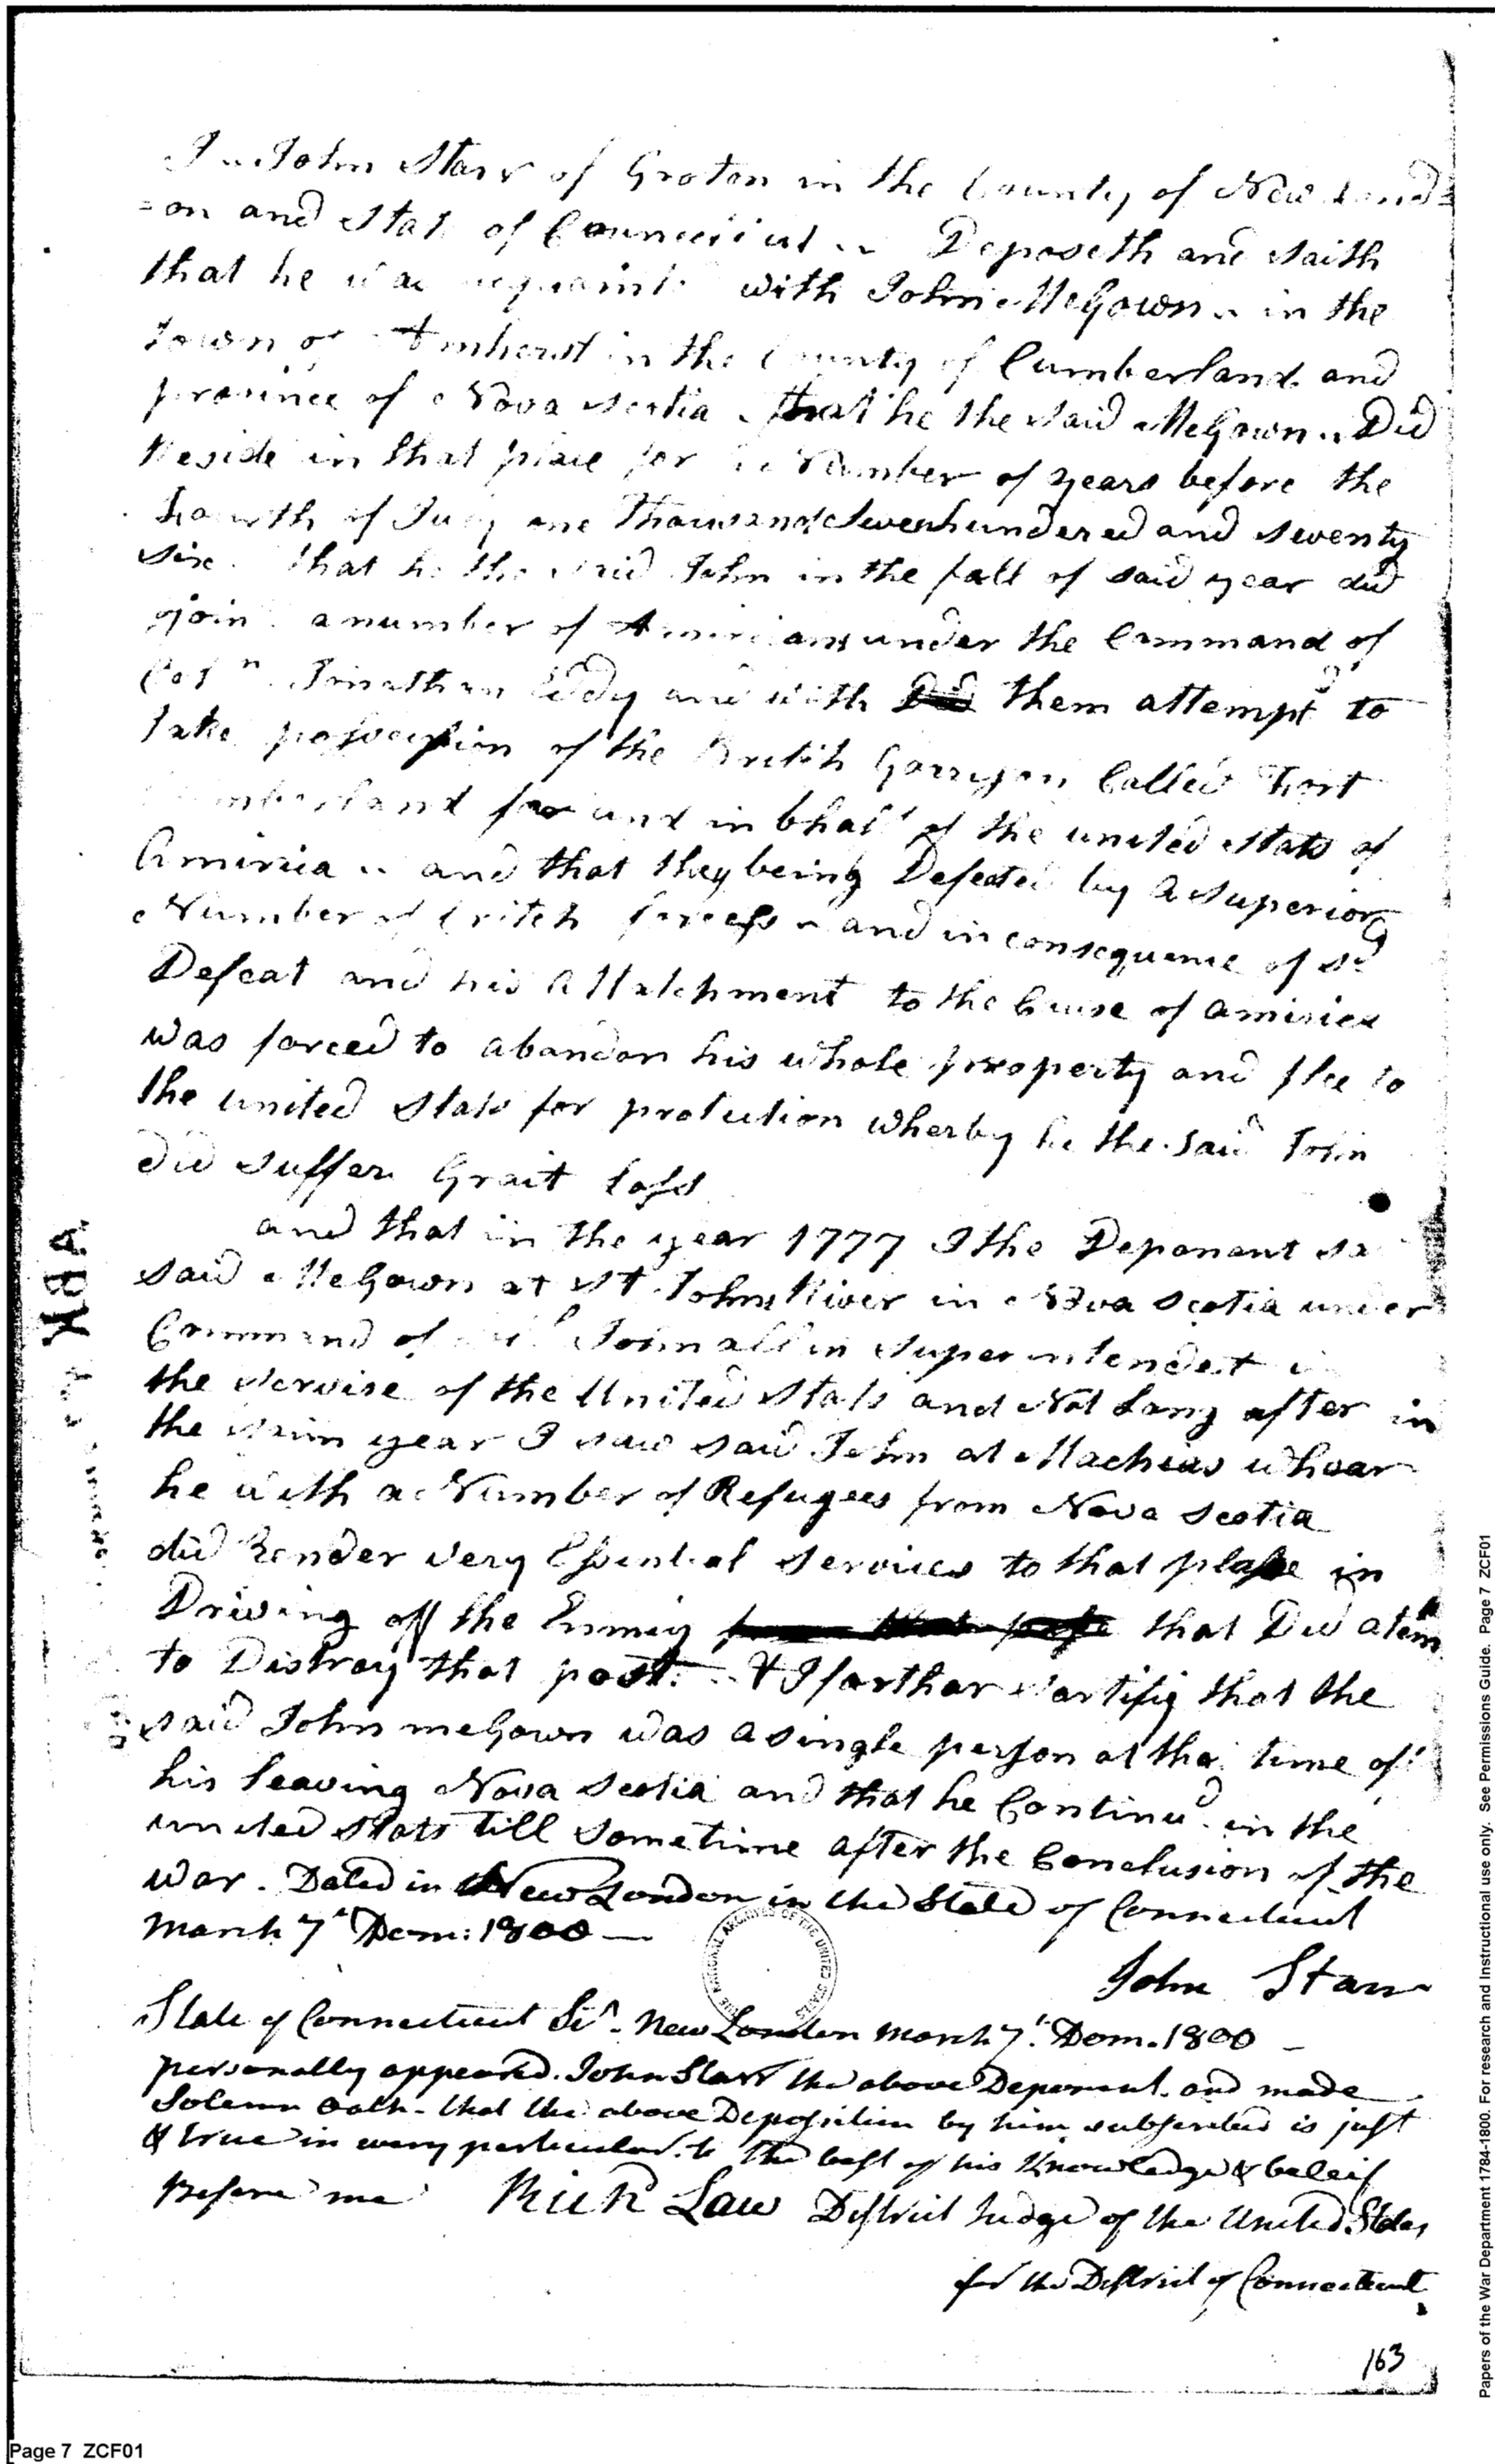 I John Starr of Groton in the County of New Lond=
=on and State of Connecticut .. Deposeth and saith
that he was acquaint with John McGown .. in the
town of Amherst in the County of Cumberland and
province of Nova Scotia . that he the said McGown .. Did
Reside in that place for a Number of years before the
fourth of July one Thousand Sevenhundered and seventy
six . that he the said John in the fall of said year did
join . a number of Americans under the Command of
Coln. Jonathan Eddy and with Did them attempt to
take possession of the British Garryson Called Fort
Cumberland for and in bhalf of the united Stats of
America .. and that they being Defeated by a superior
Number of british forcess .. and in consequence of sd
Defeat and his Attatchment to the Cause of america
was forced to abandon his whole property and flee to
the united Stats for protection wherby he the said John
did suffer Grait loss
and that in the year 1777 I the Deponant
said McGown at St. Johns River in Nova Scotia under
Command of John allin superintendent
the service of the United Stats and Not Long after in
the year I saw said John at Machias whear
he with a Number of Refugees from Nova Scotia
did Render very Essential services to that place in
Driving off the Enimy that Did atem
to Distroy that post. .. & I farthar sartifiy that the
said John mcGown was a single person at the time of
his leaving Nova Scotia and that he Continud in the
united Stats till sometime after the Conclusion of the
war . Dated in New London in the State of Connecticut
March 7th Dom: 1800 —
John Starr
State of Connecticut Ss. New London March 7th. Dom. 1800 —
personally appeared John Starr the above Deponent and made
Solemn Oath - that the above Deposition by him subscribed is just
& true in every particular to the best of his Knowledge & beleif
Before me Richd Law District Judge of the United States
for the District of Connecticut
163
THE NATIONAL ARCHIVES OF THE UNITED STATES
Page 7 ZCF01
Papers of the War Department 1784-1800. For research and Instructional use only. See Permissions Guide. Page 7 ZCF01